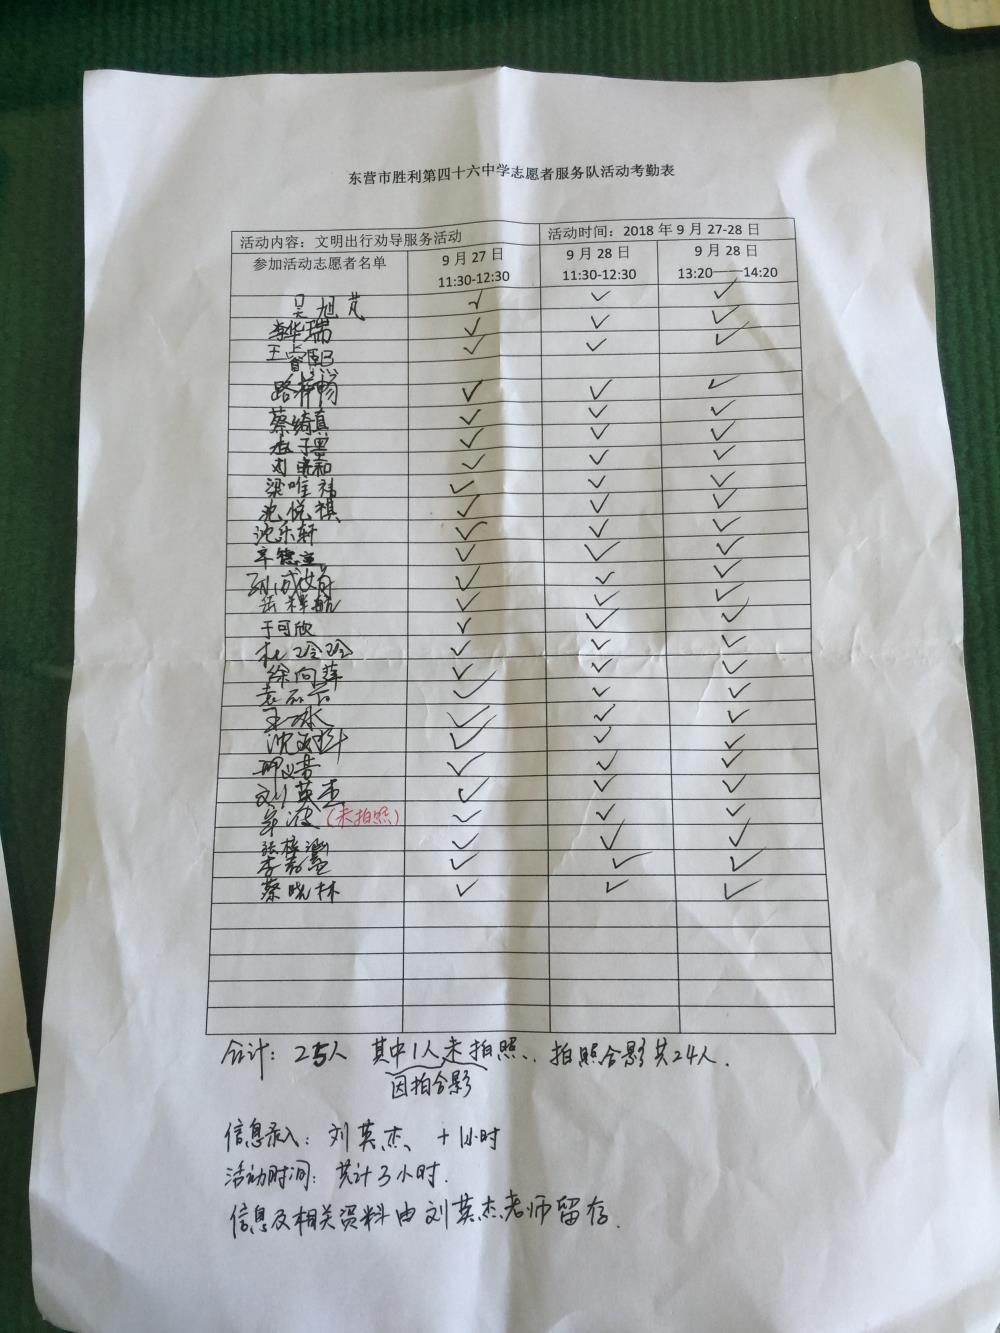 东营市胜利第四十六中学志愿者服务队活动考勤表
活动内容：文明出行劝导服务活动 活动时间：2018 年 9 月 27-28 日
参加活动志愿者名单 9 月 27 日 9 月 28 日 9 月 28 日
11:30-12:30 11:30-12:30 13:20——14:20
吴旭芃 ✓ ✓ ✓
李华瑞 ✓ ✓ ✓
王睿熙 ✓ ✓ ✓
路梓畅 ✓ ✓ ✓
蔡绮真 ✓ ✓ ✓
✓ ✓ ✓
✓ ✓ ✓
梁唯祎 ✓ ✓ ✓
沈悦祺 ✓ ✓ ✓
沈乐轩 ✓ ✓ ✓
✓ ✓ ✓
✓ ✓ ✓
岳梓航 ✓ ✓ ✓
于可欣 ✓ ✓ ✓
杜玲玲 ✓ ✓ ✓
徐向萍 ✓ ✓ ✓
✓ ✓ ✓
✓ ✓ ✓
✓ ✓ ✓
✓ ✓ ✓
刘英杰 ✓ ✓ ✓
(未拍照) ✓ ✓ ✓
✓ ✓ ✓
✓ ✓ ✓
蔡晓林 ✓ ✓ ✓
合计：25人 其中1人未拍照、拍照合影共24人.
因拍合影
信息录入：刘英杰 +1小时
活动时间：共计3小时.
信息及相关资料由刘英杰老师留存.